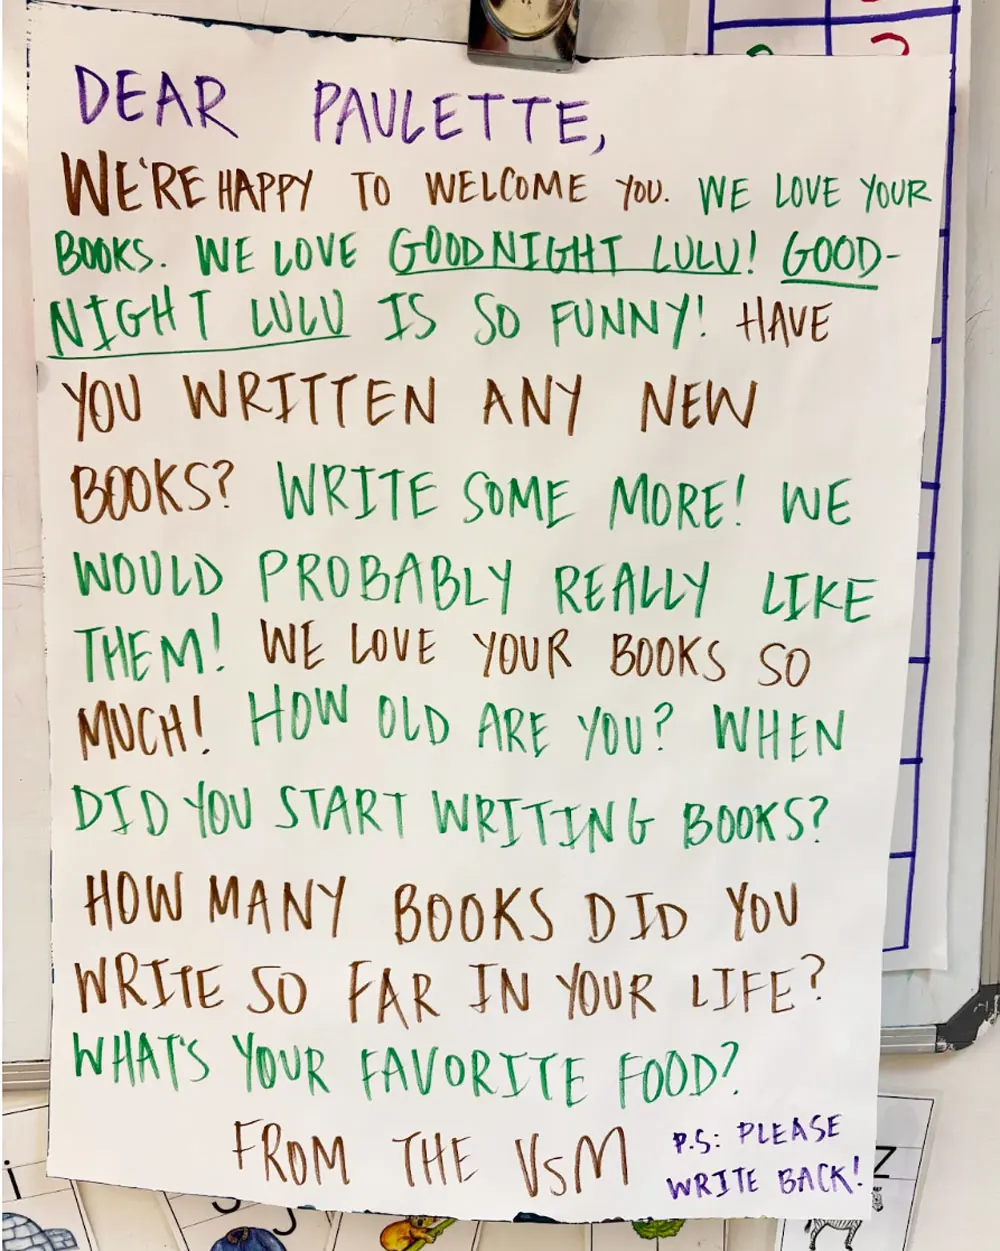 DEAR PAULETTE,
WE'RE HAPPY TO WELCOME YOU. WE LOVE YOUR
BOOKS. WE LOVE GOODNIGHT LULU! GOOD-
NIGHT LULU IS SO FUNNY! HAVE
YOU WRITTEN ANY NEW
BOOKS? WRITE SOME MORE! WE
WOULD PROBABLY REALLY LIKE
THEM! WE LOVE YOUR BOOKS SO
MUCH! HOW OLD ARE YOU? WHEN
DID YOU START WRITING BOOKS?
HOW MANY BOOKS DID YOU
WRITE SO FAR IN YOUR LIFE?
WHAT'S YOUR FAVORITE FOOD?
FROM THE VSM
P.S: PLEASE
WRITE BACK!
i
Z